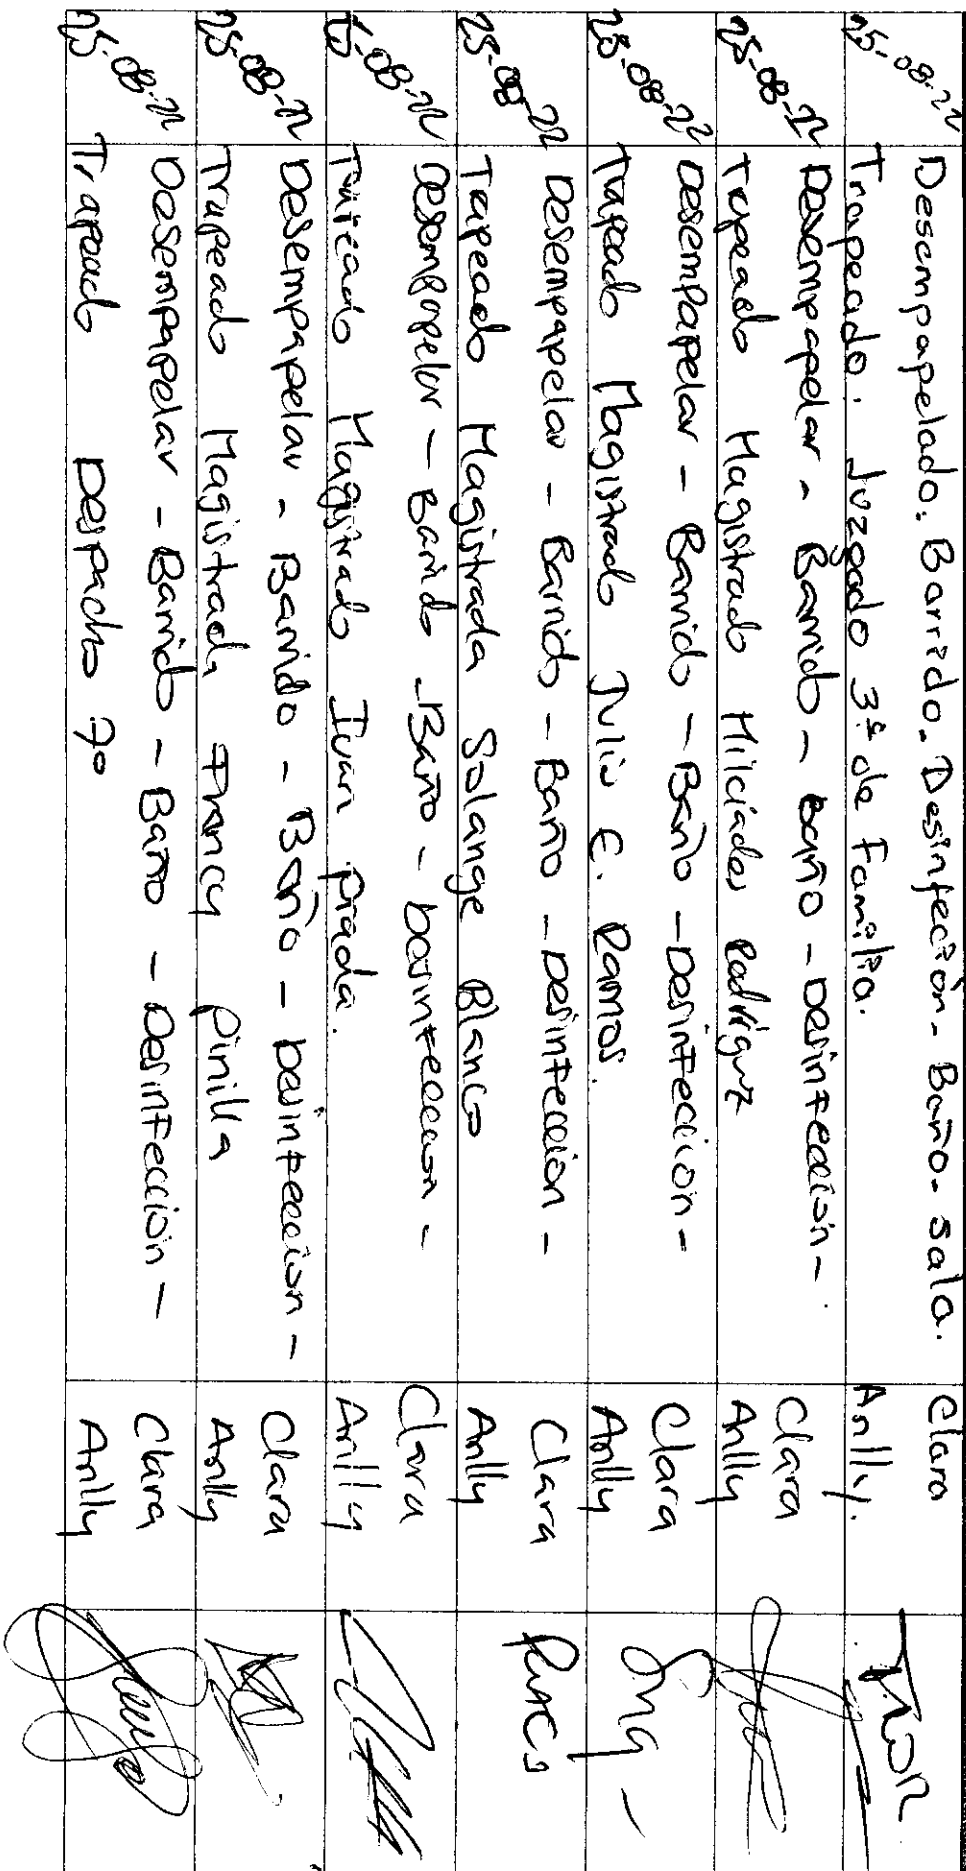 25-08-22 Desempapelado. Barrido. Desinfección - Baño. sala. Clara
Trapeado. Juzgado 3º de Familia. Anlly.
25-08-22 Desempapelar - Barrido - baño - Desinfección -
Trapeado Magistrado Milciades Rodríguez
Clara
Anlly
25-08-22 Desempapelar - Barrido - Baño - Desinfeccion -
Trapeado Magistrado Julio E. Ramos.
Clara
Anlly
25-08-22 Desempapelar - Barrido - Baño - Desinfeccion -
Tapeado Magistrada Solange Blanco
Clara
Anlly
08-22 Desempapelar - Barrido - Baño - Desinfeccion -
Trapeado Magistrado Ivan Prada.
Clara
Anlly
25-08-22 Desempapelar - Barrido - Baño - Desinfeccion -
Trapeado Magistrada Francy Pinilla
Clara
Anlly
25-08-22 Desempapelar - Barrido - Baño - Desinfeccion -
Trapeado Despacho 7o
Clara
Anlly